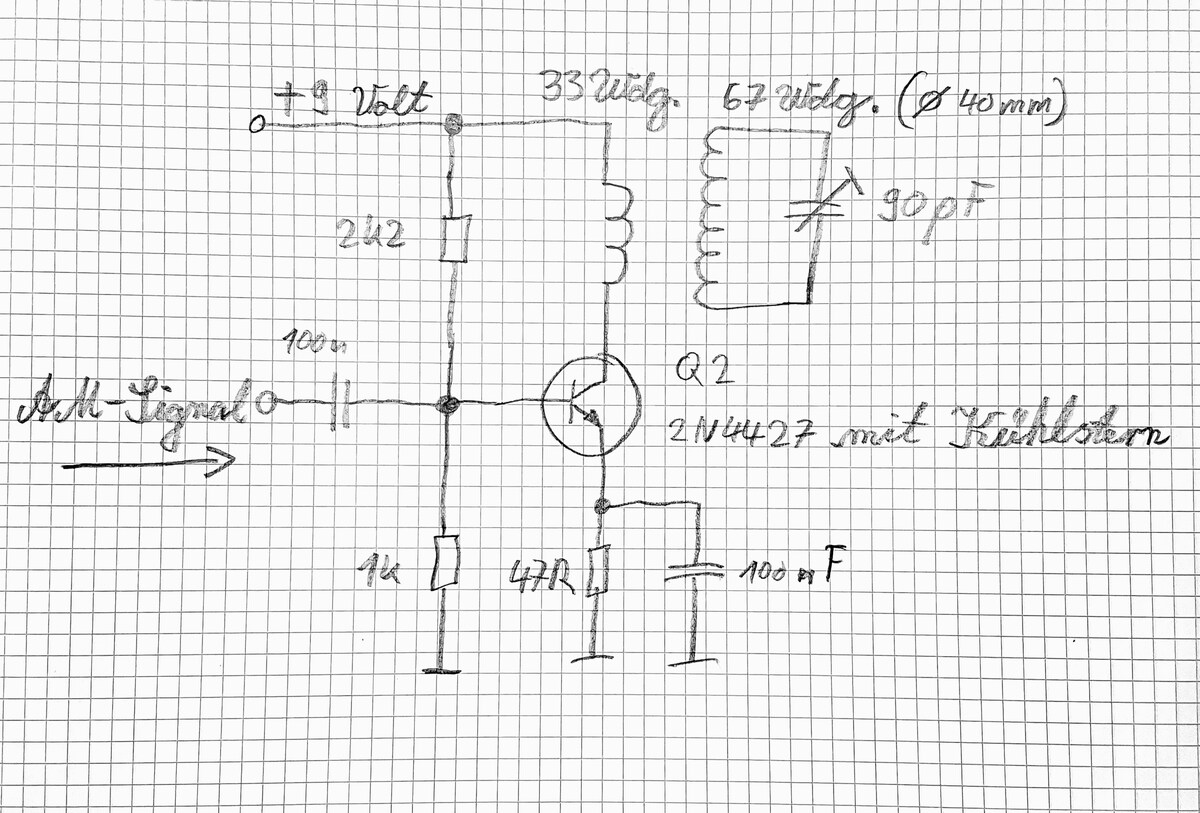 +9 Volt
33 Wdg.
67 Wdg. (Ø 40mm)
2k2
90pF
100n
Q2
AM-Signal
2N4427 mit Kühlstern
1k
47R
100nF